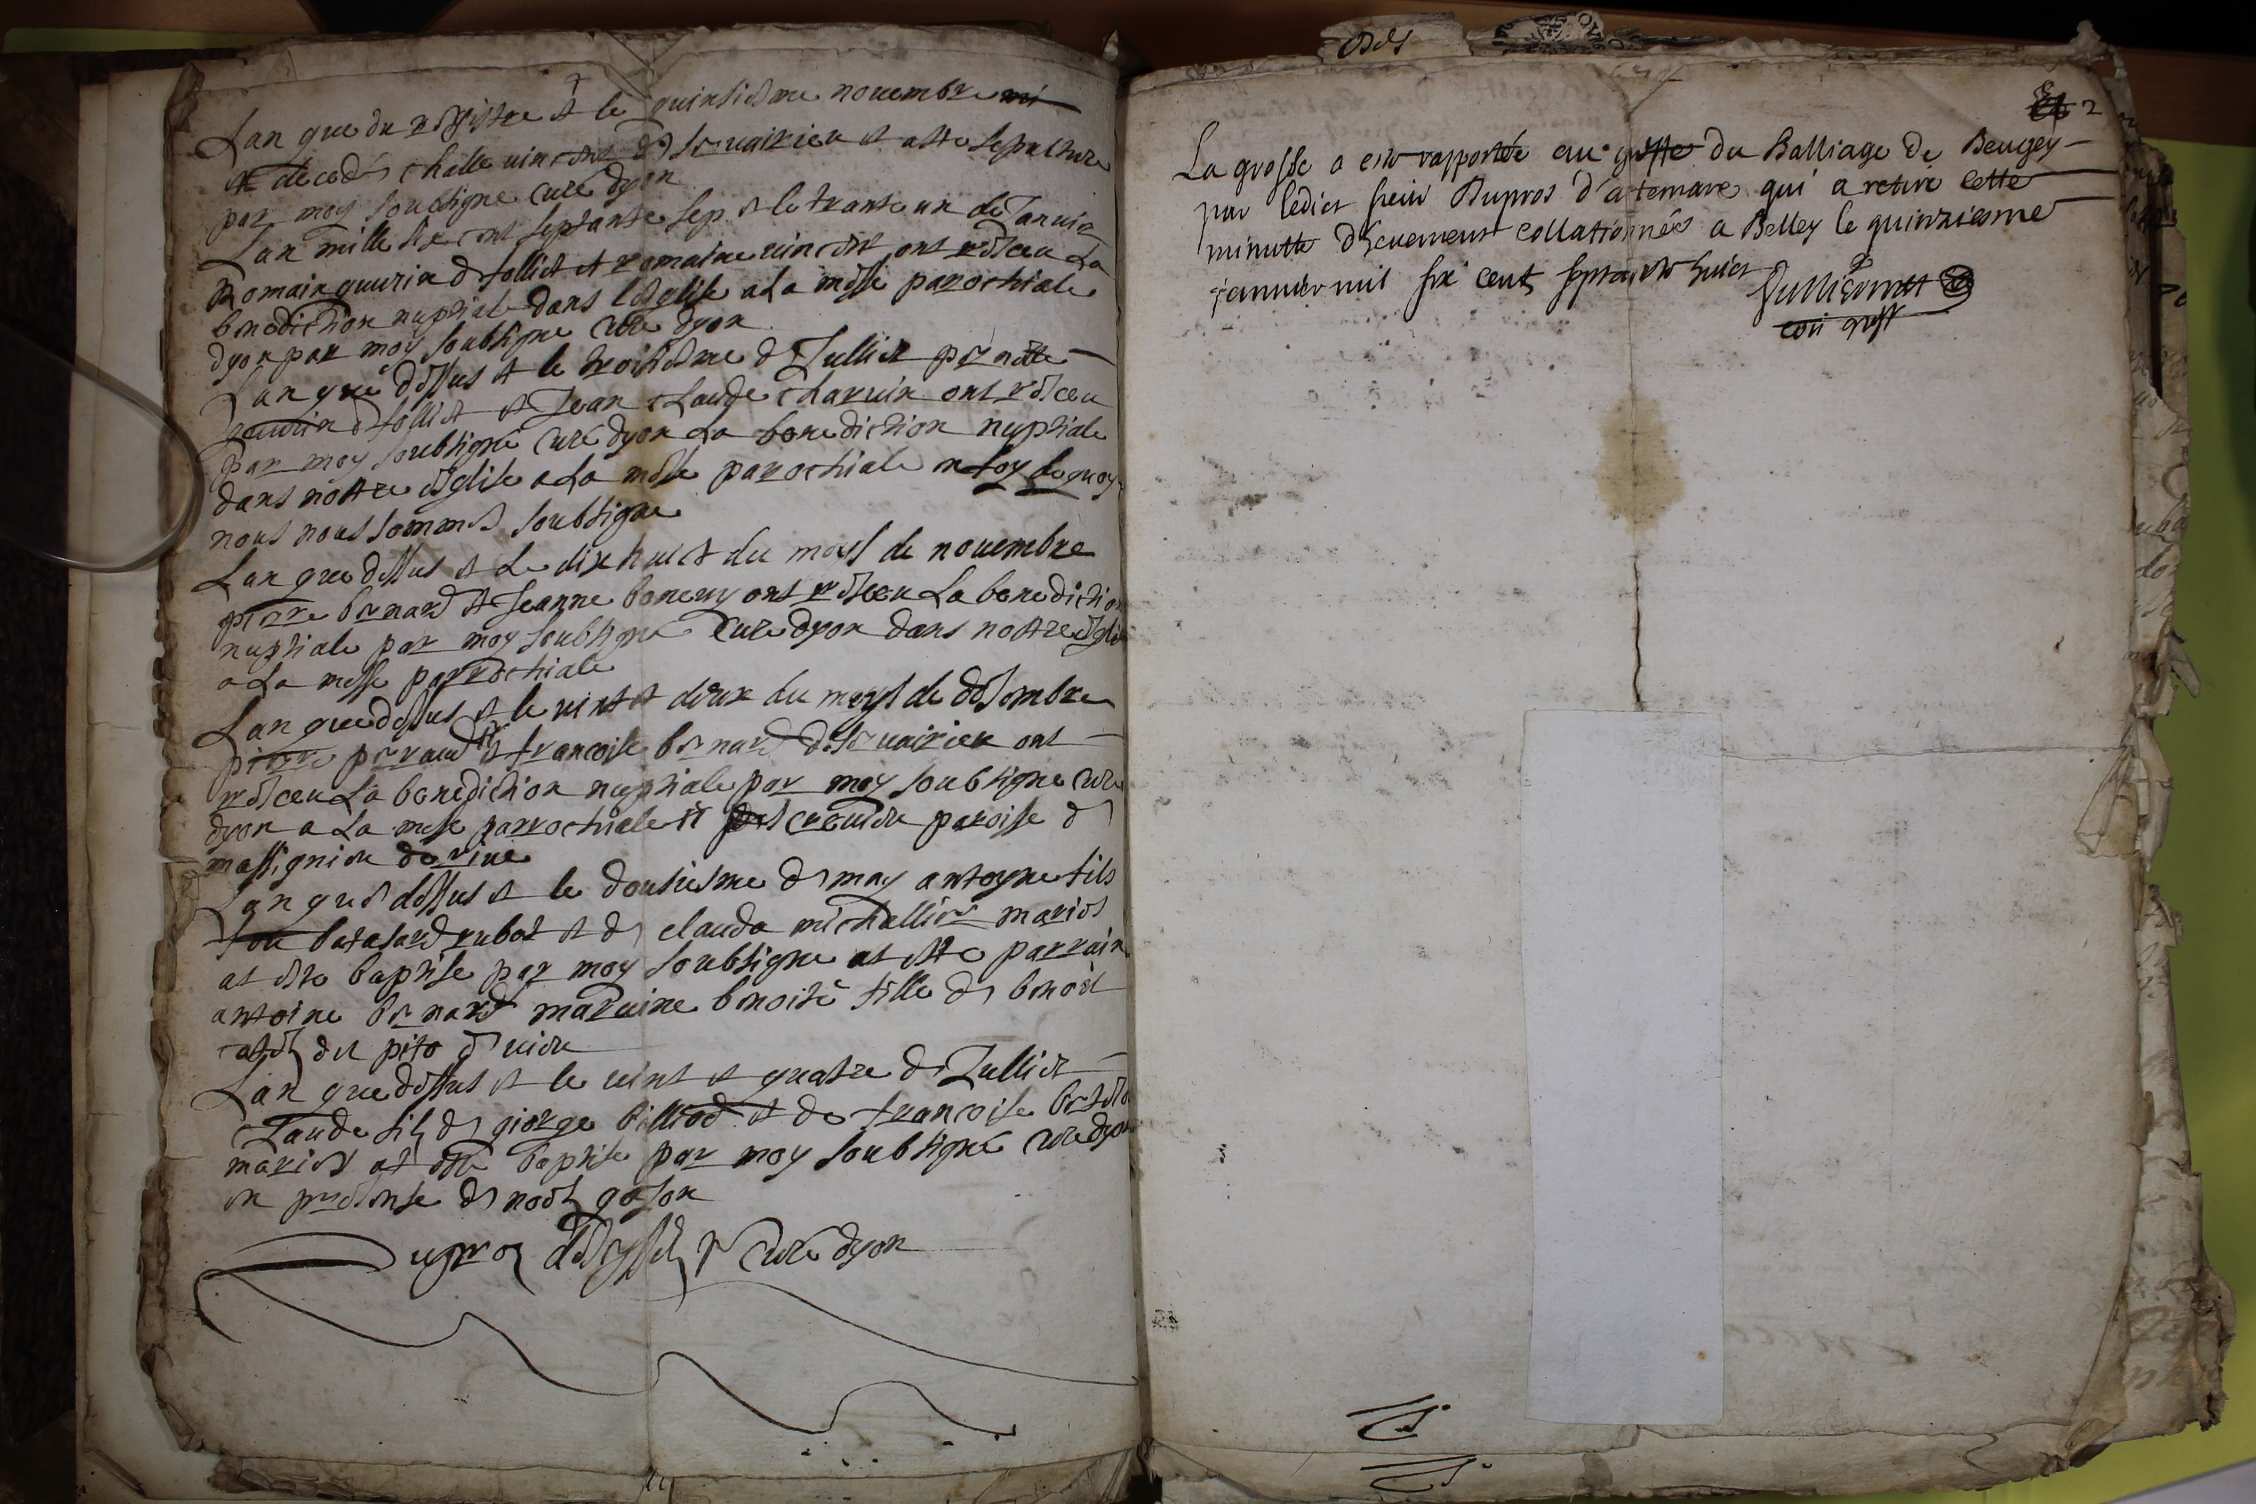 Lan que du registre et le quinsiesme nouembre
et decedé challe uincent de seruairieu et aste sepulture
par moy soubsigne curé dyon
Lan mille six cent septante sep et le trante un de Januier
Romain guurin de follict et romaine uincent ont resceu La
benediction nuptiale dans lesglise a La messe parochiale
dyon par moy soubsigne cure dyon
Lan que dessus et le troisiesme de Jullict pernette
guurin de follict et Jean Claude charuin ont resceu
par moy soubsigné curé dyon La benediction nuptiale
dans nostre esglise a La messe parochiale en foy de quoy
nous nous sommes soubsigne
Lan que dessus et Le dix huict du moys de nouembre
pierre bernard et Jeanne ont resceu La benediction
nuptiale par moy soubsigné cure dyon dans nostre esglise
a La messe parrochiale
Lan que dessus et le uint et deux du moys de desembre
pierre perraud et francoise bernard de seruairieu ont
resceu La benediction nuptiale par moy soubsigne cure
dyon a La messe parrochiale et paroisse de
massignieu de riue
Lan que dessus et le dousiesme de may antoyne fils
feu batasard rubat et de claude michallict maries
at este baptise par moy soubsigne at este parrain
antoine bernard maraine benoite fille de benoit
de uieu
Lan que dessus et le uint et quatre de Jullict
Claude fils de giorge billiod et de francoise
maries at este baptise par moy soubsigné cure dyon
en presense de noel goion
Dupros cure dyon
2
La grosse a este rapportée au greffe du Balliage de Beugey
par ledict sieur Dupros d'artemare qui a retiré cette
minutte deuement collationnée a Belley le quinziesme
januier mil six cent septante huict
con greff